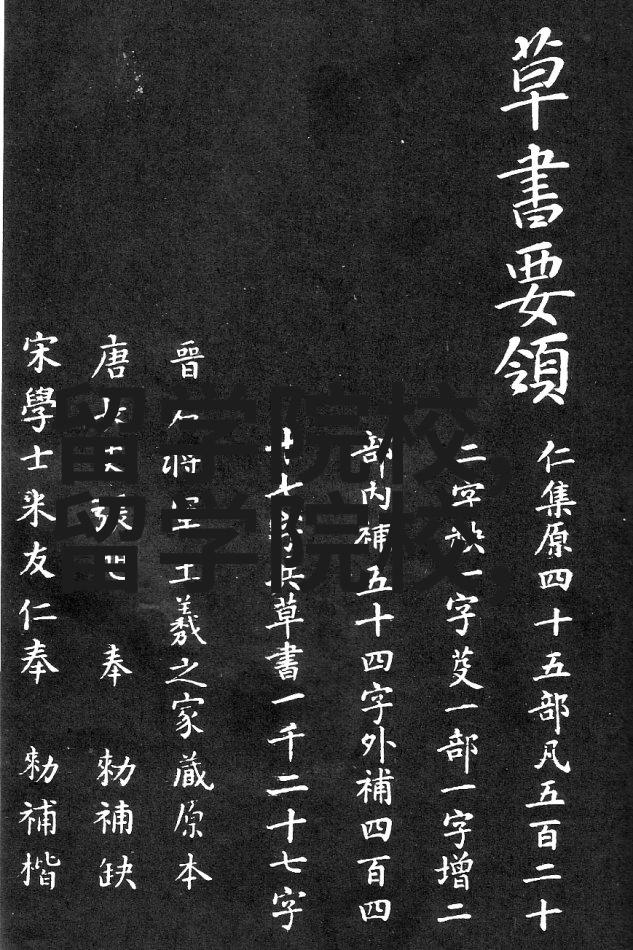 草書要領
仁集原四十五部凡五百二十
二字一字芟一部一字增二
部内補五十四字外補四百四
十七共草書一千二十七字
晉將王羲之家藏原本
唐張 奉 勅補缺
宋學士米友仁奉 勅補楷
留学院校,
留学院校,